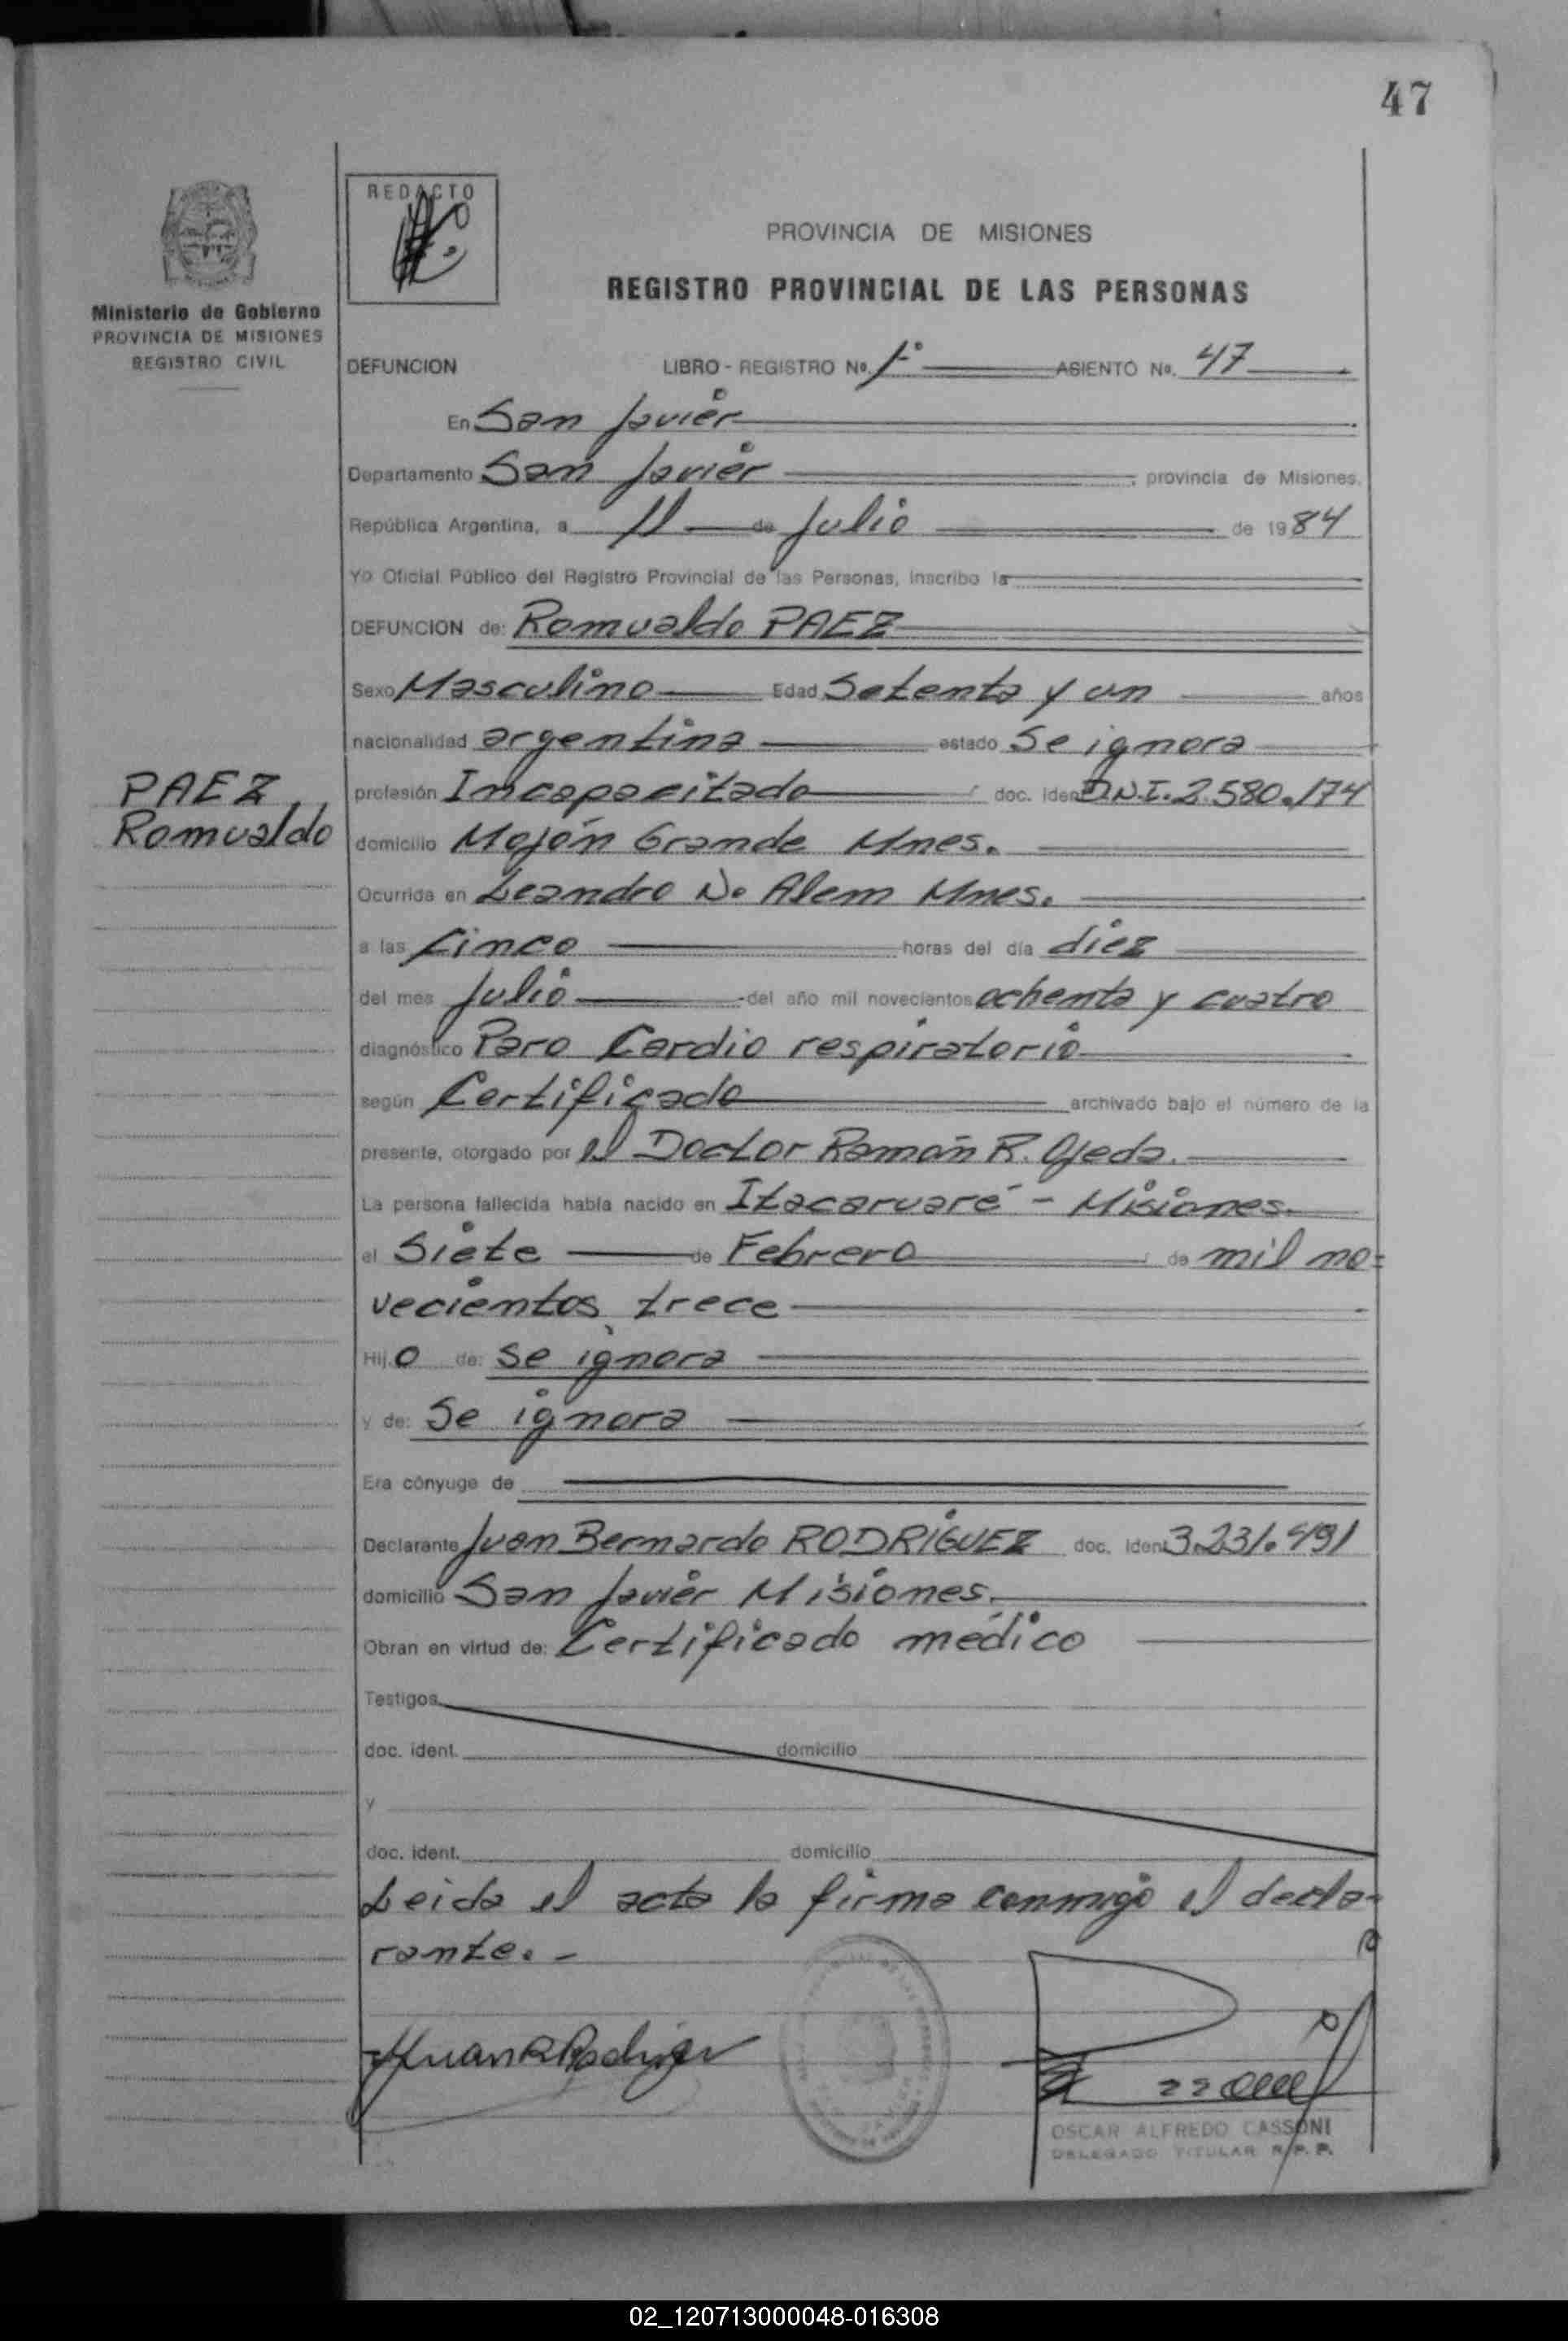 47
REDACTO
PROVINCIA DE MISIONES
REGISTRO PROVINCIAL DE LAS PERSONAS
Ministerio de Gobierno
PROVINCIA DE MISIONES
REGISTRO CIVIL
DEFUNCION LIBRO - REGISTRO Nº. 1º ASIENTO Nº. 47
En San Javier
Departamento San Javier provincia de Misiones,
República Argentina, a 11 de Julio de 1984
Yo Oficial Público del Registro Provincial de las Personas, inscribo la
DEFUNCION de: Romualdo PAEZ
Sexo Masculino Edad Setenta y un años
nacionalidad argentina estado Se ignora
PAEZ,
Romualdo
profesión Incapacitado doc. ident D.N.I. 2.580.174
domicilio Mojón Grande Mnes.
Ocurrida en Leandro N. Alem Mnes.
a las Cinco horas del día diez
del mes Julio del año mil novecientos ochenta y cuatro
diagnóstico Paro Cardio respiratorio
según Certificado archivado bajo el número de la
presente, otorgado por el Doctor Ramón R. Ojeda.
La persona fallecida había nacido en Itacaruaré - Misiones
el Siete de Febrero de mil no=
vecientos trece
Hijo de: Se ignora
y de: Se ignora
Era cónyuge de
Declarante Juan Bernardo RODRIGUEZ doc. ident 3.231.491
domicilio San Javier Misiones.
Obran en virtud de: Certificado médico
Testigos
doc. ident. domicilio
y
doc. ident. domicilio
Leida el acta la firma conmigo el decla-
rante. -
Juan B Rodriguez
OSCAR ALFREDO CASSONI
DELEGADO TITULAR R.P.P.
02_120713000048-016308